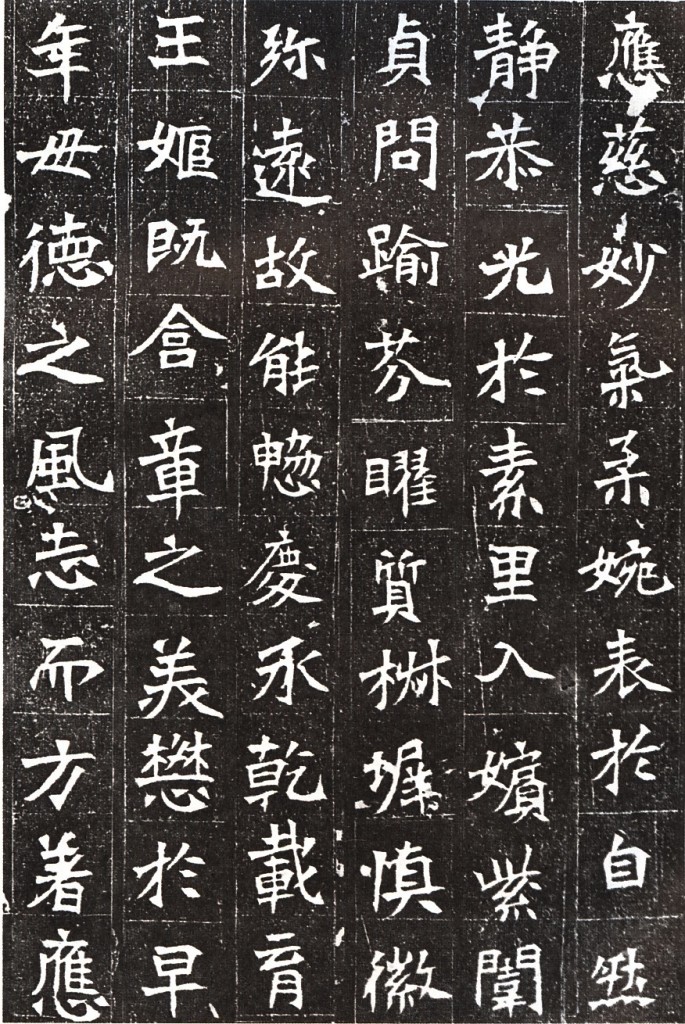 應慈妙氣柔婉表於自然
靜恭光於素里入嬪紫闈
貞問踰芬曜質椒墀慎徽
弥遠故能惣慶承乾載育
王姬既含章之美懋於早
年母德之風志而方著應